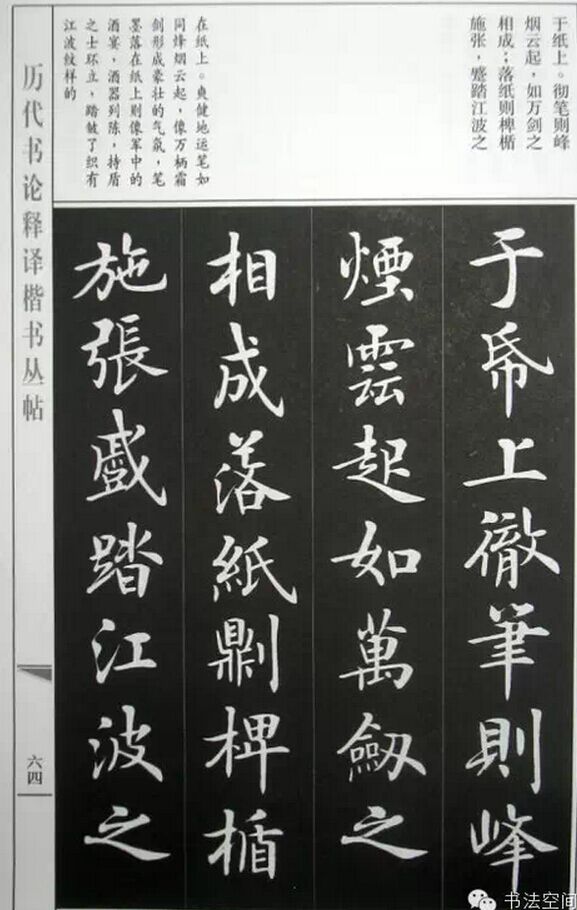 于纸上。彻笔则峰
烟云起，如万剑之
相成；落纸则椑楯
施张，蹙踏江波之
在纸上。爽健地运笔如
同烽烟云起，像万柄霜
剑形成豪壮的气氛，笔
墨落在纸上则像军中的
酒宴，酒器列陈，持盾
之士环立，踏皱了织有
江波纹样的
于帋上徹筆則峰
煙雲起如萬劔之
相成落紙椑楯
施張蹙踏江波之
历代书论释译楷书丛帖
六四
书法空间